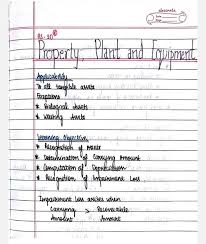 Property, Plant and Equipment
Applicability
To all tangible assets
Exceptions
* Biological Assets
* Wasting Assets
Learning Objective
* Recognition of Assets
* Determination of Carrying Amount
* Computation of Depreciation
* Recognition of Impairment Loss
Impairment Loss arises when
Carrying > Recoverable
Amount Amount